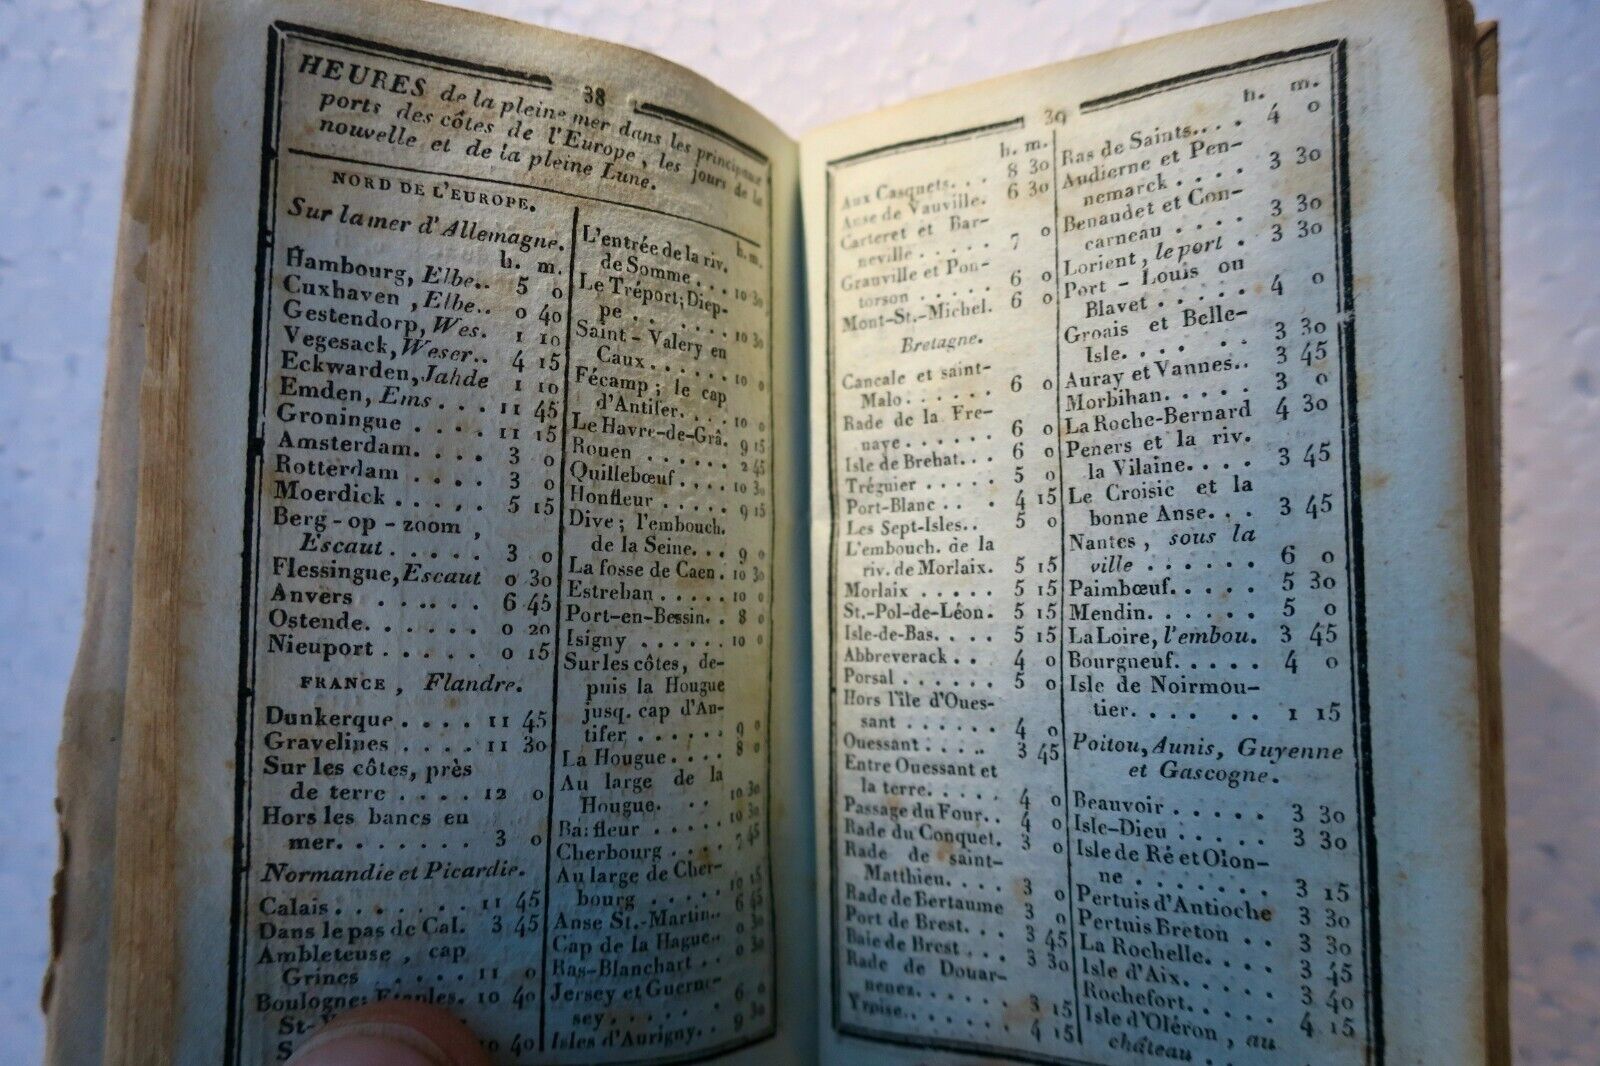 38
HEURES de la pleine mer dans les principaux
ports des côtes de l'Europe, les jours de la
nouvelle et de la pleine Lune.
NORD DE L'EUROPE.
Sur la mer d'Allemagne.
h. m.
Hambourg, Elbe.. 5 0
Cuxhaven, Elbe.. 0 40
Gestendorp, Wes. 1 10
Vegesack, Weser.. 4 15
Eckwarden, Jahde 1 10
Emden, Ems ... 11 45
Groningue .... 11 15
Amsterdam.... 3 0
Rotterdam .... 3 0
Moerdick ..... 5 15
Berg-op-zoom,
Escaut..... 3 0
Flessingue, Escaut 0 30
Anvers ...... 6 45
Ostende....... 0 20
Nieuport ..... 0 15
FRANCE, Flandre.
Dunkerque.... 11 45
Gravelines .... 11 30
Sur les côtes, près
de terre .... 12 0
Hors les bancs en
mer....... 3 0
Normandie et Picardie.
Calais ....... 11 45
Dans le pas de Cal. 3 45
Ambleteuse, cap
Grines ..... 11 0
Boulogne; Etaples. 10 40
St-
10 40
h. m.
L'entrée de la riv.
de Somme... 10 30
Le Tréport; Diep-
pe ....... 10 30
Saint-Valery en
Caux...... 10 0
Fécamp; le cap
d'Antifer.... 10 0
Le Havre-de-Grâ. 9 15
Rouen ...... 2 45
Quillebœuf.... 10 30
Honfleur ..... 9 15
Dive; l'embouch.
de la Seine... 9 0
La fosse de Caen. 10 30
Estreban ..... 10 0
Port-en-Bessin.. 8 0
Isigny ...... 10 0
Sur les côtes, de-
puis la Hougue
jusq. cap d'An-
tifer ....... 9 0
La Hougue.... 8 0
Au large de la
Hougue... 10 30
Barfleur ..... 10 30
Cherbourg .... 7 45
Au large de Cher-
bourg .... 10 15
Anse St.-Martin.. 6 45
Cap de la Hague.. 0 30
Ras-Blanchart .. 0 30
Jersey et Guerne-
sey....... 6 0
Isles d'Aurigny. 9 30
39
h. m.
Aux Casquets... 8 30
Anse de Vauville. 6 30
Carteret et Bar-
neville .... 7 0
Granville et Pon-
torson ..... 6 0
Mont-St.-Michel. 6 0
Bretagne.
Cancale et saint-
Malo ...... 6 0
Rade de la Fre-
naye ...... 6 0
Isle de Brehat... 6 0
Tréguier ..... 5 0
Port-Blanc ... 4 15
Les Sept-Isles.. 5 0
L'embouch. de la
riv. de Morlaix. 5 15
Morlaix ..... 5 15
St.-Pol-de-Léon. 5 15
Isle-de-Bas.... 5 15
Abbreverack .. 4 0
Porsal ...... 5 0
Hors l'île d'Oues-
sant ...... 4 0
Ouessant .... 3 45
Entre Ouessant et
la terre..... 4 0
Passage du Four.. 4 0
Rade du Conquet. 3 0
Rade de saint-
Matthieu.... 3 0
Rade de Bertaume 3 0
Port de Brest... 3 45
Baie de Brest... 3 30
Rade de Douar-
nenez...... 3 15
Yrpise....... 4 15
h. m.
Ras de Saints.... 4 0
Audierne et Pen-
nemarck .... 3 30
Benaudet et Con-
carneau .... 3 30
Lorient, le port . 3 30
Port-Louis ou
Blavet ..... 4 0
Groais et Belle-
Isle...... 3 30
Auray et Vannes.. 3 45
Morbihan.... 3 0
La Roche-Bernard 4 30
Peners et la riv.
la Vilaine.... 3 45
Le Croisic et la
bonne Anse... 3 45
Nantes, sous la
ville ...... 6 0
Paimbœuf..... 5 30
Mendin..... 5 0
La Loire, l'embou. 3 45
Bourgneuf..... 4 0
Isle de Noirmou-
tier...... 1 15
Poitou, Aunis, Guyenne
et Gascogne.
Beauvoir ..... 3 30
Isle-Dieu ..... 3 30
Isle de Ré et Olon-
ne ....... 3 15
Pertuis d'Antioche 3 30
Pertuis Breton .. 3 30
La Rochelle.... 3 45
Isle d'Aix..... 3 40
Rochefort..... 4 15
Isle d'Oléron, au
château ..